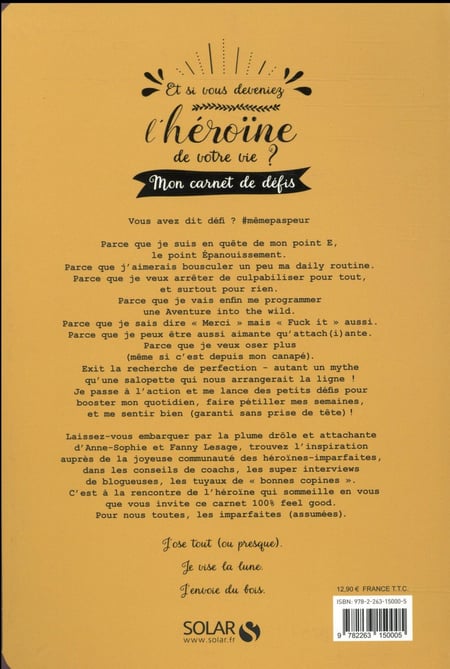 Et si vous deveniez
l'héroïne
de votre vie ?
Mon carnet de défis
Vous avez dit défi ? #mêmepaspeur
Parce que je suis en quête de mon point E,
le point Épanouissement.
Parce que j'aimerais bousculer un peu ma daily routine.
Parce que je veux arrêter de culpabiliser pour tout,
et surtout pour rien.
Parce que je vais enfin me programmer
une Aventure into the wild.
Parce que je sais dire « Merci » mais « Fuck it » aussi.
Parce que je peux être aussi aimante qu'attach(i)ante.
Parce que je veux oser plus
(même si c'est depuis mon canapé).
Exit la recherche de perfection - autant un mythe
qu'une salopette qui nous arrangerait la ligne !
Je passe à l'action et me lance des petits défis pour
booster mon quotidien, faire pétiller mes semaines,
et me sentir bien (garanti sans prise de tête) !
Laissez-vous embarquer par la plume drôle et attachante
d'Anne-Sophie et Fanny Lesage, trouvez l'inspiration
auprès de la joyeuse communauté des héroïnes-imparfaites,
dans les conseils de coachs, les super interviews
de blogueuses, les tuyaux de « bonnes copines ».
C'est à la rencontre de l'héroïne qui sommeille en vous
que vous invite ce carnet 100% feel good.
Pour nous toutes, les imparfaites (assumées).
J'ose tout (ou presque).
Je vise la lune.
J'envoie du bois.
12,90 € FRANCE T.T.C.
ISBN: 978-2-263-15000-5
9 782263 150005
SOLAR S
www.solar.fr